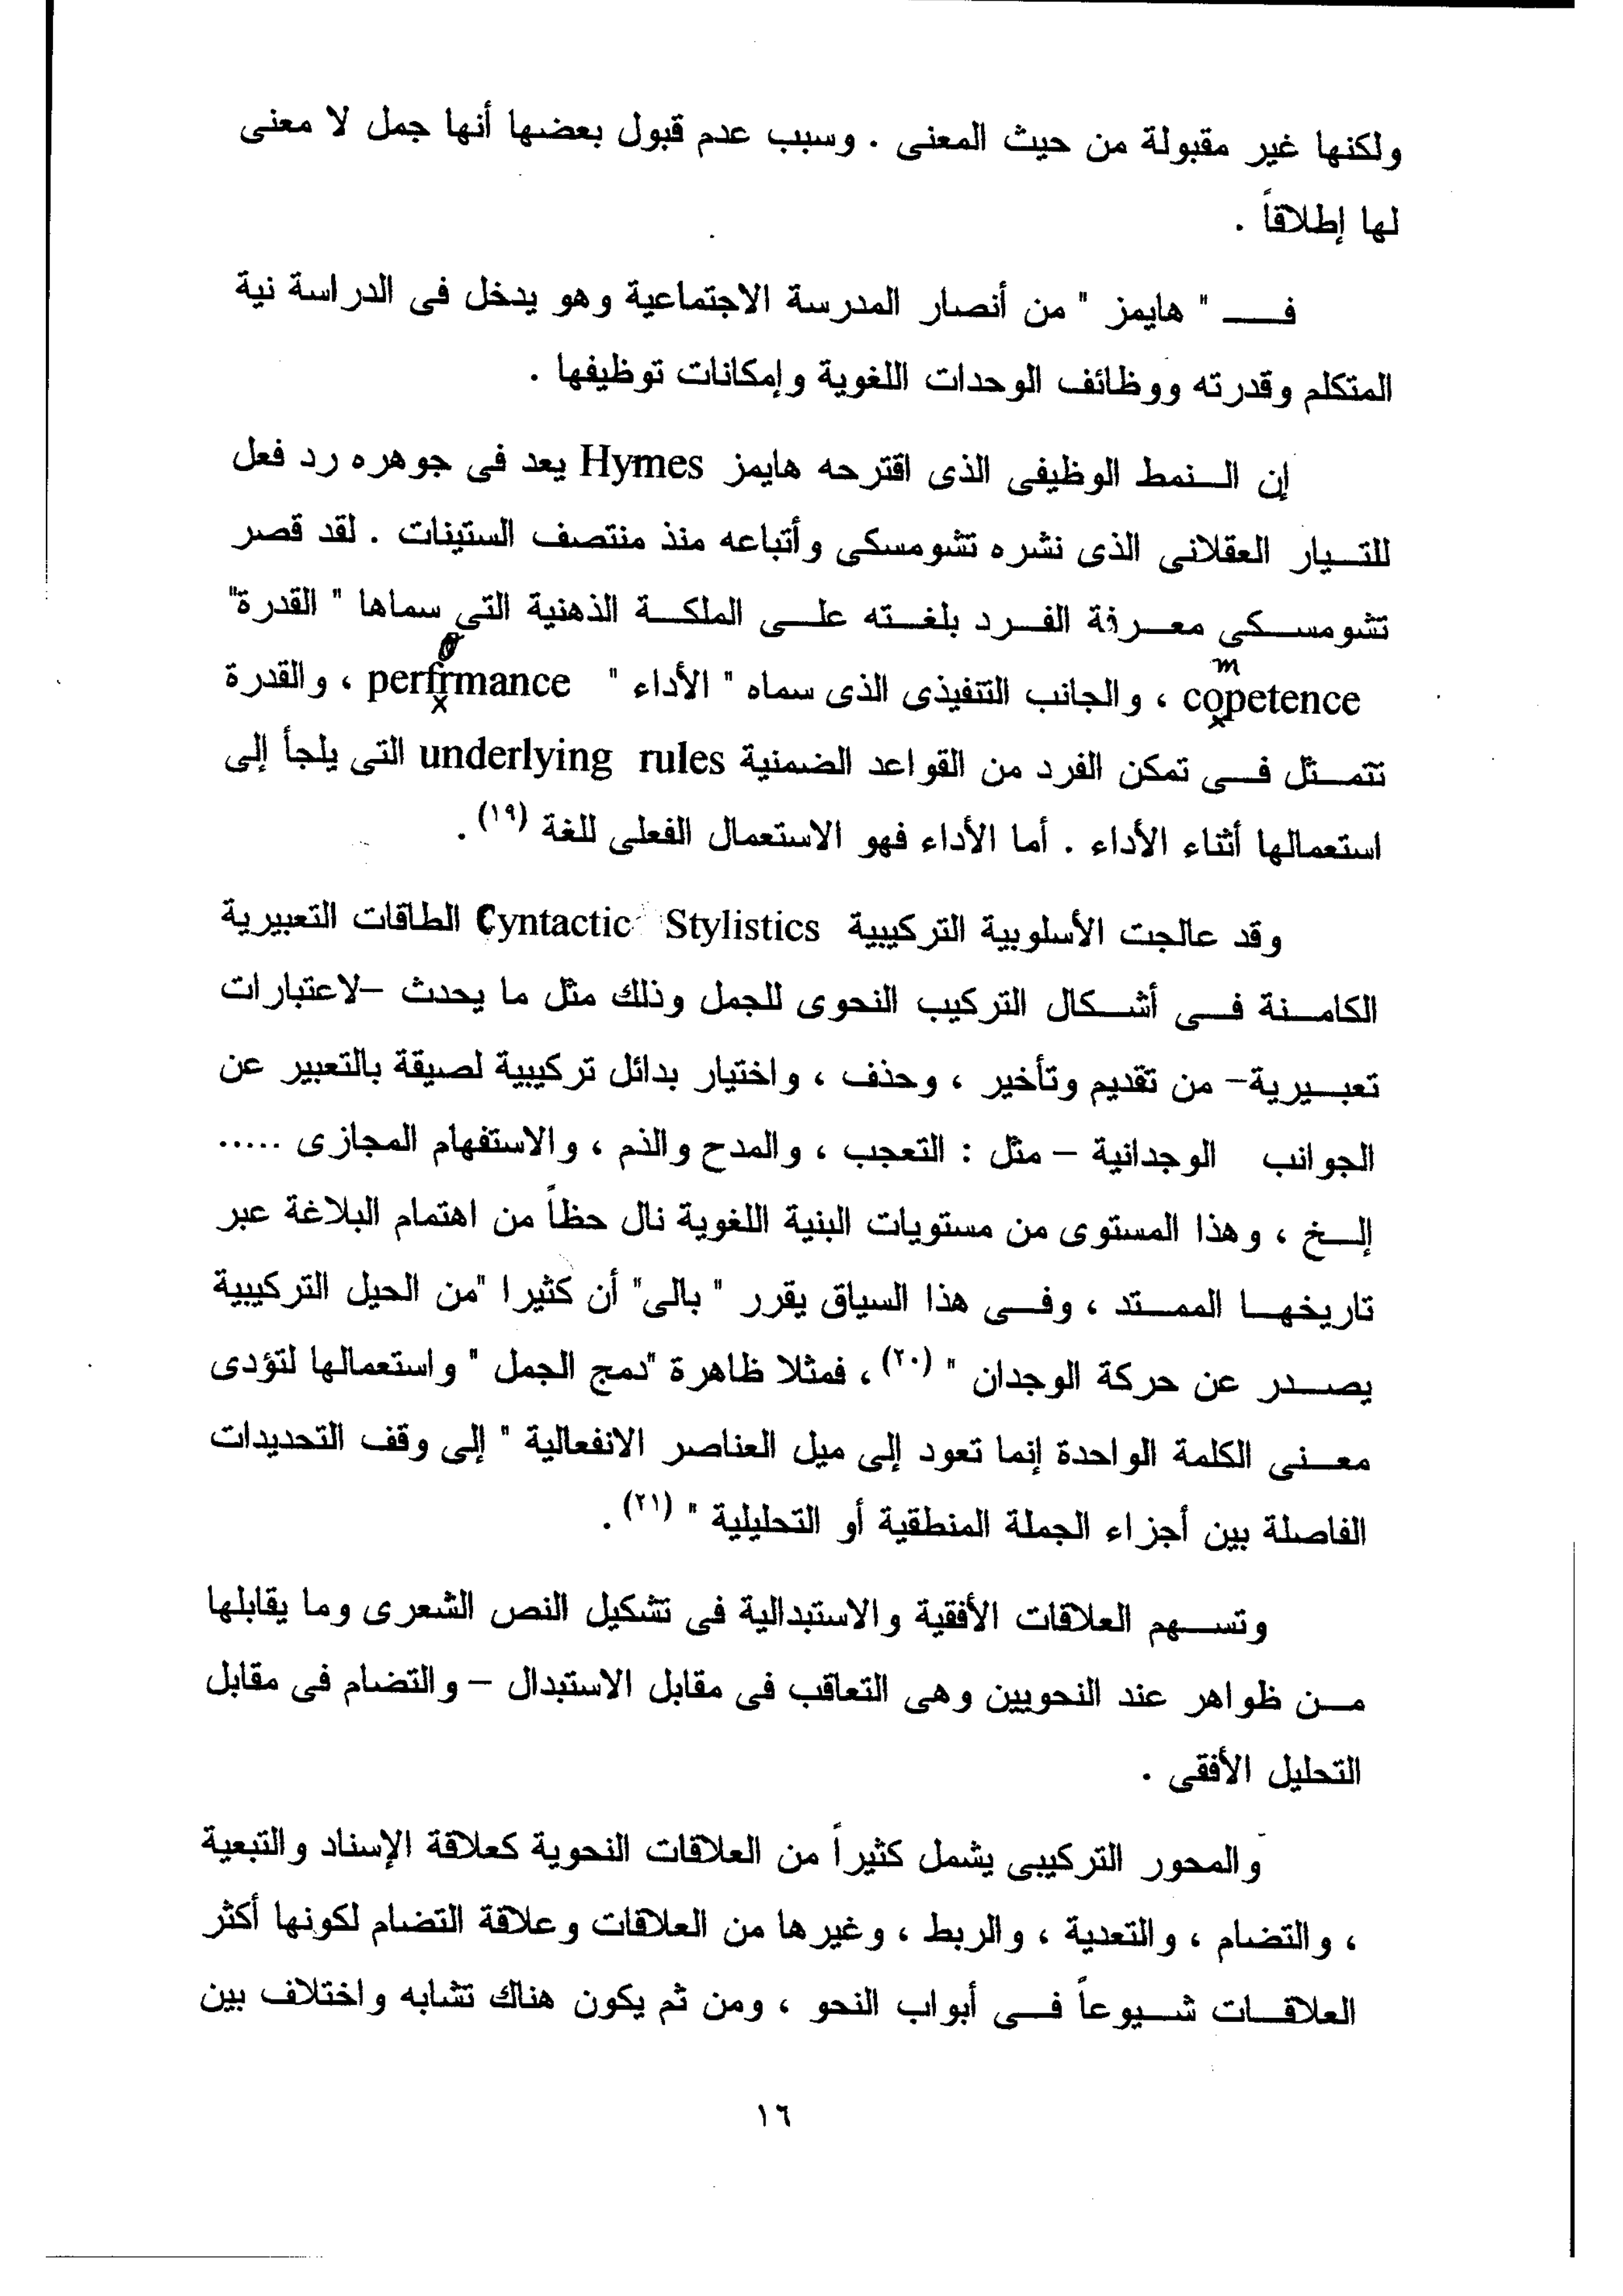 ولكنها غير مقبولة من حيث المعنى . وسبب عدم قبول بعضها أنها جمل لا معنى
لها إطلاقاً .
فـــ " هايمز " من أنصار المدرسة الاجتماعية وهو يدخل فى الدراسة نية
المتكلم وقدرته ووظائف الوحدات اللغوية وإمكانات توظيفها .
إن الـنمط الوظيفى الذى اقترحه هايمز Hymes يعد فى جوهره رد فعل
للتـيار العقلانى الذى نشره تشومسكى وأتباعه منذ منتصف الستينات . لقد قصر
تشومسـكي معـرفة الفـرد بلغـته علـى الملكـة الذهنية التي سماها " القدرة"
o
m
copetence ، والجانب التنفيذى الذى سماه " الأداء " perfirmance ، والقدرة
x x
تتمـثل فـى تمكن الفرد من القواعد الضمنية underlying rules التى يلجأ إلى
استعمالها أثناء الأداء . أما الأداء فهو الاستعمال الفعلى للغة (١٩) .
وقد عالجت الأسلوبية التركيبية Cyntactic Stylistics الطاقات التعبيرية
الكامـنة فـى أشـكال التركيب النحوى للجمل وذلك مثل ما يحدث –لاعتبارات
تعبـيرية– من تقديم وتأخير ، وحذف ، واختيار بدائل تركيبية لصيقة بالتعبير عن
الجوانب الوجدانية – مثل : التعجب ، والمدح والذم ، والاستفهام المجازى .....
إلـخ ، وهذا المستوى من مستويات البنية اللغوية نال حظاً من اهتمام البلاغة عبر
تاريخهـا الممـتد ، وفـى هذا السياق يقرر " بالى" أن كثيرا "من الحيل التركيبية
يصـدر عن حركة الوجدان " (٢٠) ، فمثلا ظاهرة "دمج الجمل " واستعمالها لتؤدى
معـنى الكلمة الواحدة إنما تعود إلى ميل العناصر الانفعالية " إلى وقف التحديدات
الفاصلة بين أجزاء الجملة المنطقية أو التحليلية " (٢١) .
وتسـهم العلاقات الأفقية والاستبدالية فى تشكيل النص الشعرى وما يقابلها
مـن ظواهر عند النحويين وهى التعاقب فى مقابل الاستبدال – والتضام فى مقابل
التحليل الأفقى .
والمحور التركيبى يشمل كثيراً من العلاقات النحوية كعلاقة الإسناد والتبعية
، والتضام ، والتعدية ، والربط ، وغيرها من العلاقات وعلاقة التضام لكونها أكثر
العلاقـات شـيوعاً فـى أبواب النحو ، ومن ثم يكون هناك تشابه واختلاف بين
١٦